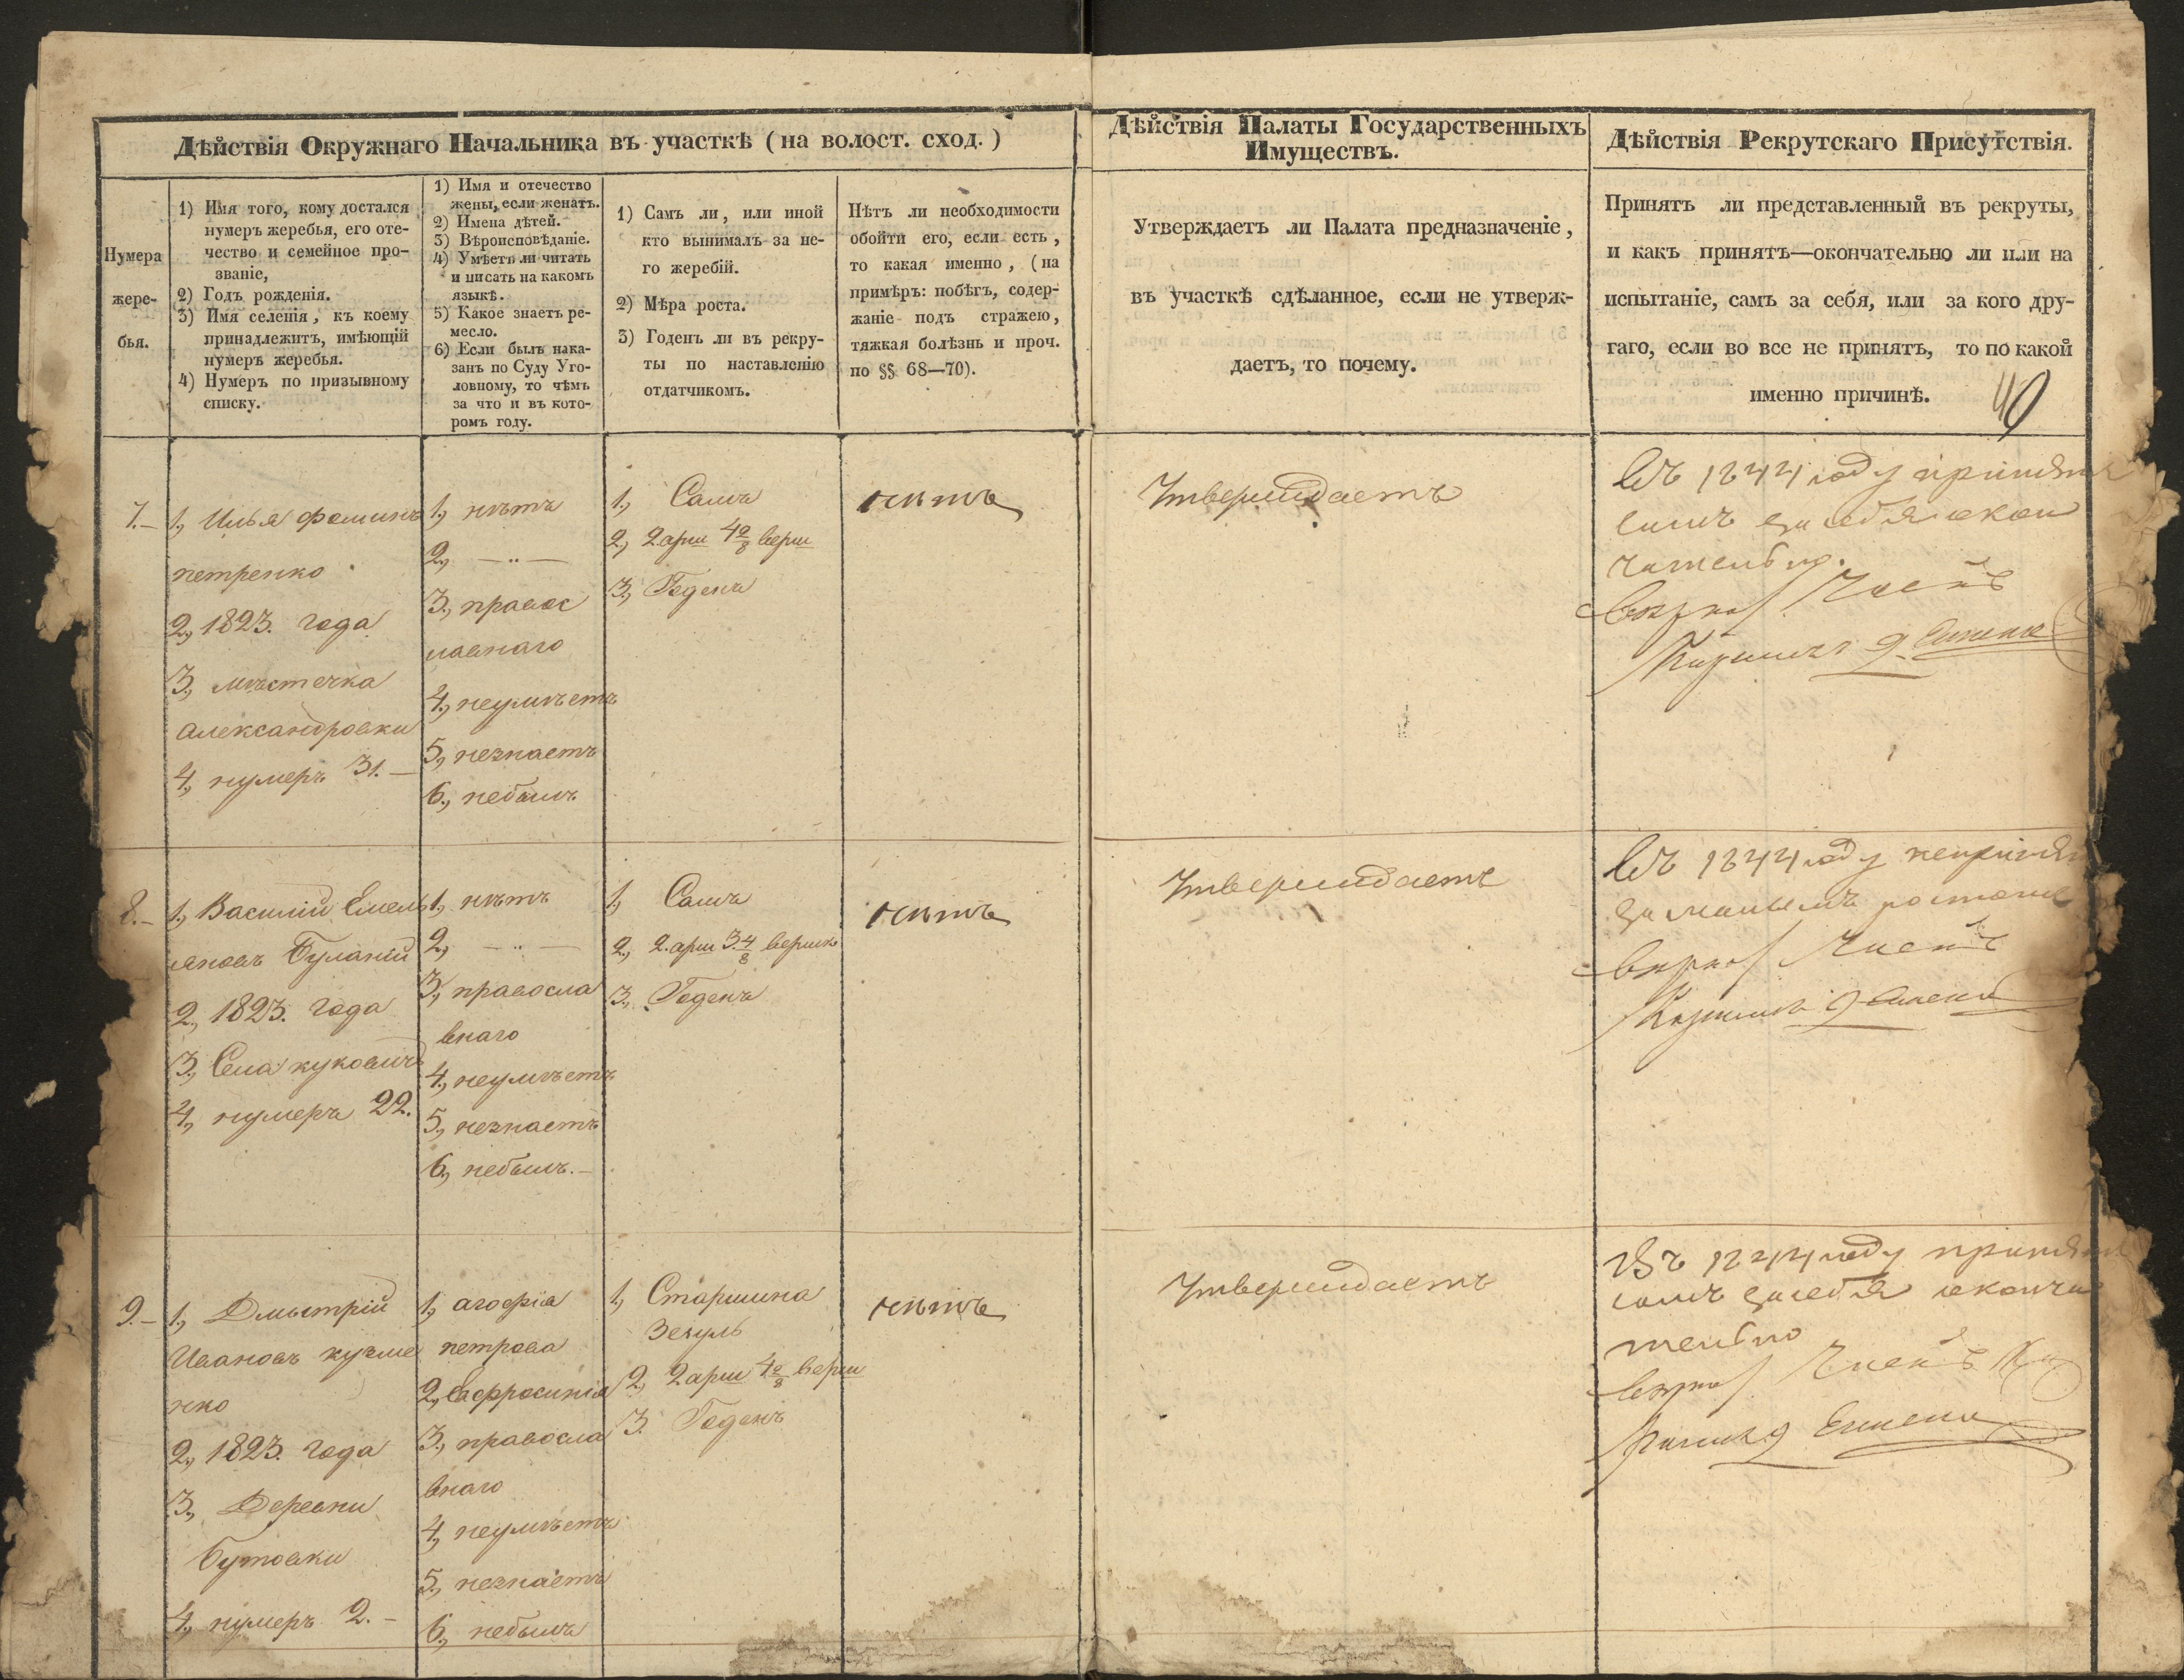 Дѣйствія Окружнаго Начальника въ участкѣ (на волост. сход.)
Дѣйствія Палаты Государственныхъ
Имуществъ.
Дѣйствія Рекрутскаго Присутствія.
Нумера
жере-
бья.
1) Имя того, кому достался
нумеръ жеребья, его оте-
чество и семейное про-
званіе,
2) Годъ рожденія.
3) Имя селенія, къ коему
принадлежитъ, имѣющій
нумеръ жеребья.
4) Нумеръ по призывному
списку.
1) Имя и отечество
жены, если женатъ.
2) Имена дѣтей.
3) Вѣроисповѣданіе.
4) Умѣетъ ли читать
и писать на какомъ
языкѣ.
5) Какое знаетъ ре-
месло.
6) Если былъ нака-
занъ по Суду Уго-
ловному, то чѣмъ
за что и въ кото-
ромъ году.
1) Самъ ли, или иной
кто вынималъ за не-
го жеребій.
2) Мѣра роста.
3) Годенъ ли въ рекру-
ты по наставленію
отдатчикомъ.
Нѣтъ ли необходимости
обойти его, если есть,
то какая именно, (на
примѣръ: побѣгъ, содер-
жаніе подъ стражею,
тяжкая болѣзнь и проч.
по §§ 68—70).
Утверждаетъ ли Палата предназначеніе,
въ участкѣ сдѣланное, если не утверж-
даетъ, то почему.
Принятъ ли представленный въ рекруты,
и какъ принятъ—окончательно ли или на
испытаніе, самъ за себя, или за кого дру-
гаго, если во все не принятъ, то по какой
именно причинѣ.
40
7.—
1, Илья Фоминъ
петренко
2, 1823. года
3, мѣстечка
александровки
4, нумеръ 31.—
1, нѣтъ
2, — „ —
3, правос
лавнаго
4, неумѣетъ
5, незнаетъ
6, небылъ
1, Самъ
2, 2 арш 4 2/8 верш
3, Годенъ
нѣтъ
Утверждаетъ
Въ 1844 году принятъ
самъ за себя окон
чательно.
8.—
1, Василій Емель
яновъ Буланій
2, 1823. года
3, Села куковичъ
4, нумеръ 22.
1, нѣтъ
2, — „ —
3, правосла
внаго
4, неумѣетъ
5, незнаетъ
6, небылъ.—
1, Самъ
2, 2. арш 3 4/8 вершк
3, Годенъ
нѣтъ
Утверждаетъ
Въ 1844 году непринятъ
за малымъ ростомъ
9.—
1, Дмытрій
Ивановъ кузме
нко
2, 1823. года
3, Деревни
Бутовки
4, нумеръ 2.—
1, агофія
петрова
2, Ефросинія
3, правосла
внаго
4, неумѣетъ
5, незнаетъ
6, небылъ
1, Старшина
2, 2 арш 4 2/8 верш
3. Годенъ
нѣтъ
Утверждаетъ
Въ 1844 году принятъ
самъ за себя оконча
тельно